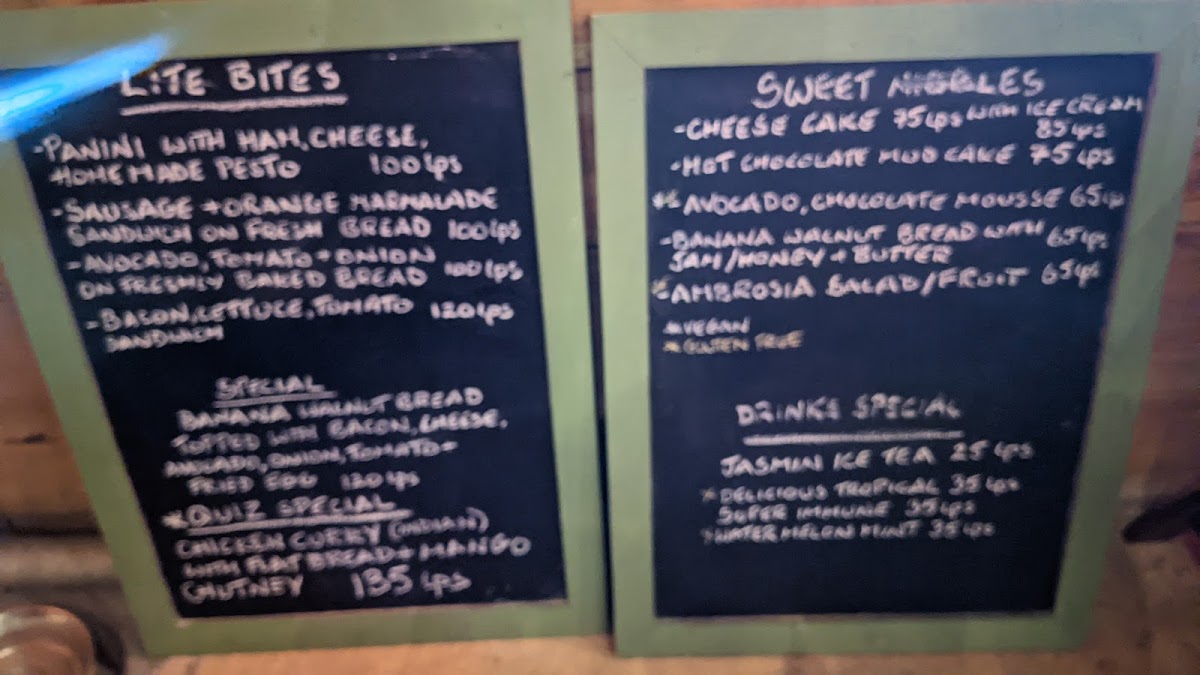 LITE BITES
-PANINI WITH HAM, CHEESE,
HOMEMADE PESTO 100 lps
-SAUSAGE + ORANGE MARMALADE
SANDWICH ON FRESH BREAD 100 lps
-AVOCADO, TOMATO + ONION
ON FRESHLY BAKED BREAD 100 lps
-BACON, LETTUCE, TOMATO 120 lps
SANDWICH
SPECIAL
BANANA WALNUT BREAD
TOPPED WITH BACON, CHEESE,
AVOCADO, ONION, TOMATO +
FRIED EGG 120 lps
*QUIZ SPECIAL
CHICKEN CURRY (INDIAN)
WITH FLAT BREAD + MANGO
CHUTNEY 135 lps
SWEET NIBBLES
-CHEESE CAKE 75 lps WITH ICE CREAM
85 lps
-HOT CHOCOLATE MUD CAKE 75 lps
** AVOCADO, CHOCOLATE MOUSSE 65 lps
-BANANA WALNUT BREAD WITH 65 lps
JAM/HONEY + BUTTER
*-AMBROSIA SALAD/FRUIT 65 lps
* VEGAN
* GLUTEN FREE
DRINKS SPECIAL
JASMIN ICE TEA 25 lps
* DELICIOUS TROPICAL 35 lps
SUPER IMMUNE 35 lps
* WATER MELON MINT 35 lps